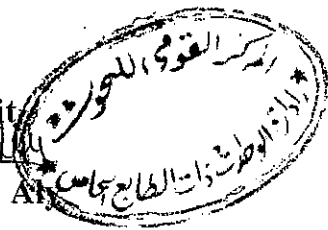 المركز القومى للبحوث
إدارة الوحدات ذات الطابع الخاص
it